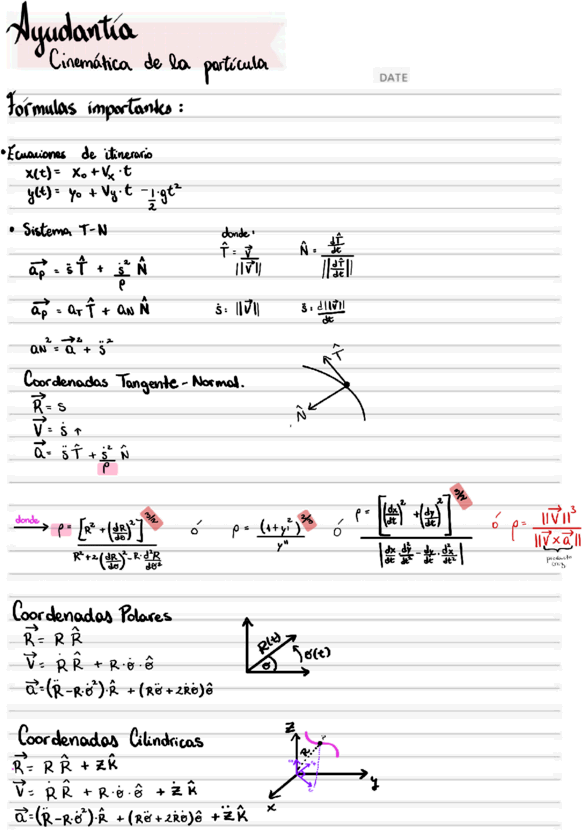 Ayudantía
Cinemática de la partícula
DATE
Fórmulas importantes:
• Ecuaciones de itinerario
x(t) = x₀ + Vx · t
y(t) = y₀ + Vy · t - 1/2 · gt²
• Sistema T-N
donde:
T̂ = v⃗ / ||v⃗||   N̂ = (dT̂/dt) / ||dT̂/dt||
a⃗p = s̈ T̂ + ṡ²/ρ N̂
a⃗p = aT T̂ + aN N̂   ṡ: ||v⃗||   s̈: d||v⃗||/dt
aN² = a⃗² + s̈²
Coordenadas Tangente - Normal.
R⃗ = s
V⃗ = ṡ T
a⃗ = s̈ T̂ + ṡ²/ρ N̂
T̂
N̂
donde → ρ = [R² + (dR/dθ)²]^3/2 / (R² + 2(dR/dθ)² - R · d²R/dθ²)   ó   ρ = (1 + y'²)^3/2 / y''   ó   ρ = [(dx/dt)² + (dy/dt)²]^3/2 / |dx/dt · d²y/dt² - dy/dt · d²x/dt²|   ó   ρ = ||V⃗||³ / ||V⃗ x a⃗||
producto cruz
Coordenadas Polares
R⃗ = R R̂
V⃗ = Ṙ R̂ + R · θ̇ · θ̂
a⃗ = (R̈ - R·θ̇²) · R̂ + (Rθ̈ + 2Ṙθ̇) θ̂
R(t)
θ
θ(t)
Coordenadas Cilindricas
R⃗ = R R̂ + z K̂
V⃗ = Ṙ R̂ + R · θ̇ · θ̂ + ż K̂
a⃗ = (R̈ - R·θ̇²) · R̂ + (Rθ̈ + 2Ṙθ̇) θ̂ + z̈ K̂
Z
R
y
x